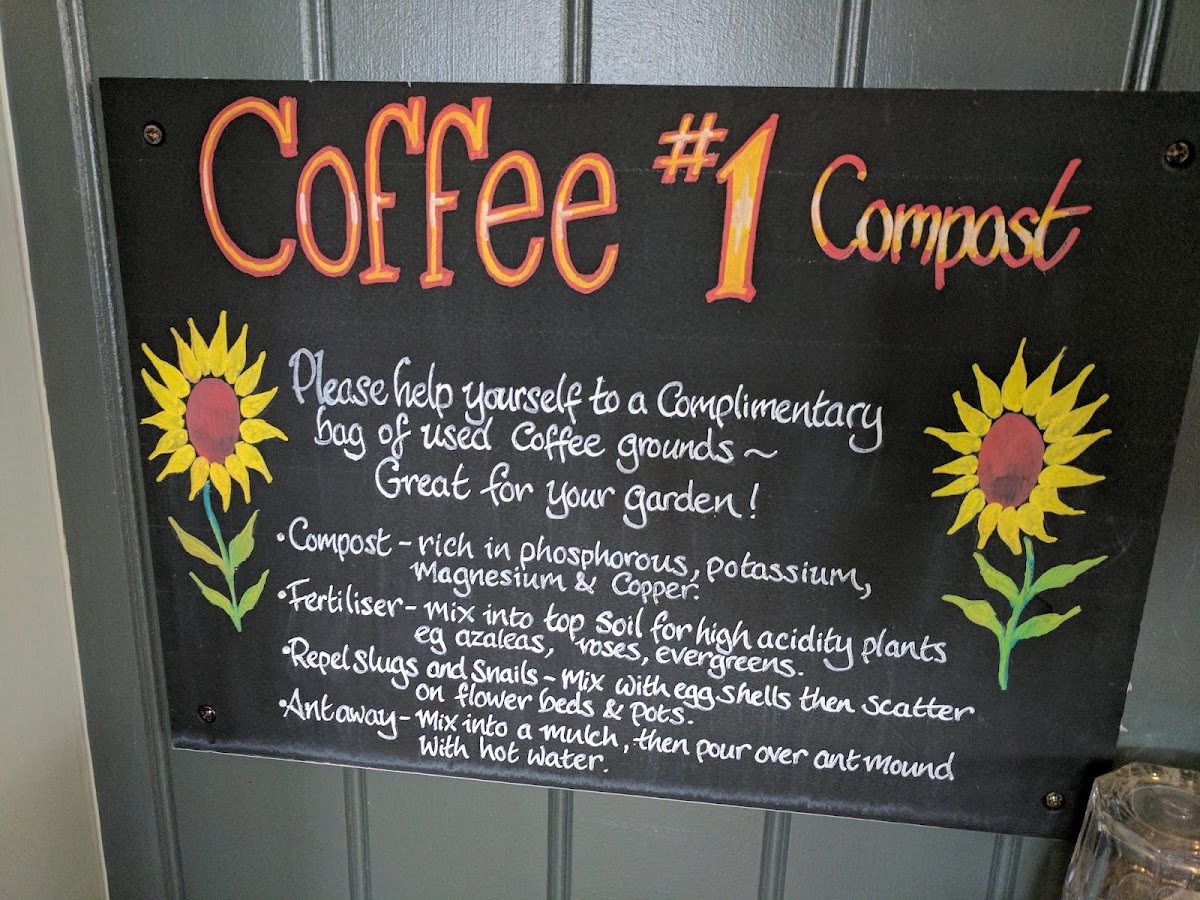 Coffee #1 Compost
Please help yourself to a Complimentary
bag of used Coffee grounds ~
Great for your garden!
• Compost - rich in phosphorous, potassium,
Magnesium & Copper.
• Fertiliser - mix into top soil for high acidity plants
eg azaleas, roses, evergreens.
• Repel slugs and snails - mix with egg shells then scatter
on flower beds & pots.
• Ant away - mix into a mulch, then pour over ant mound
with hot water.